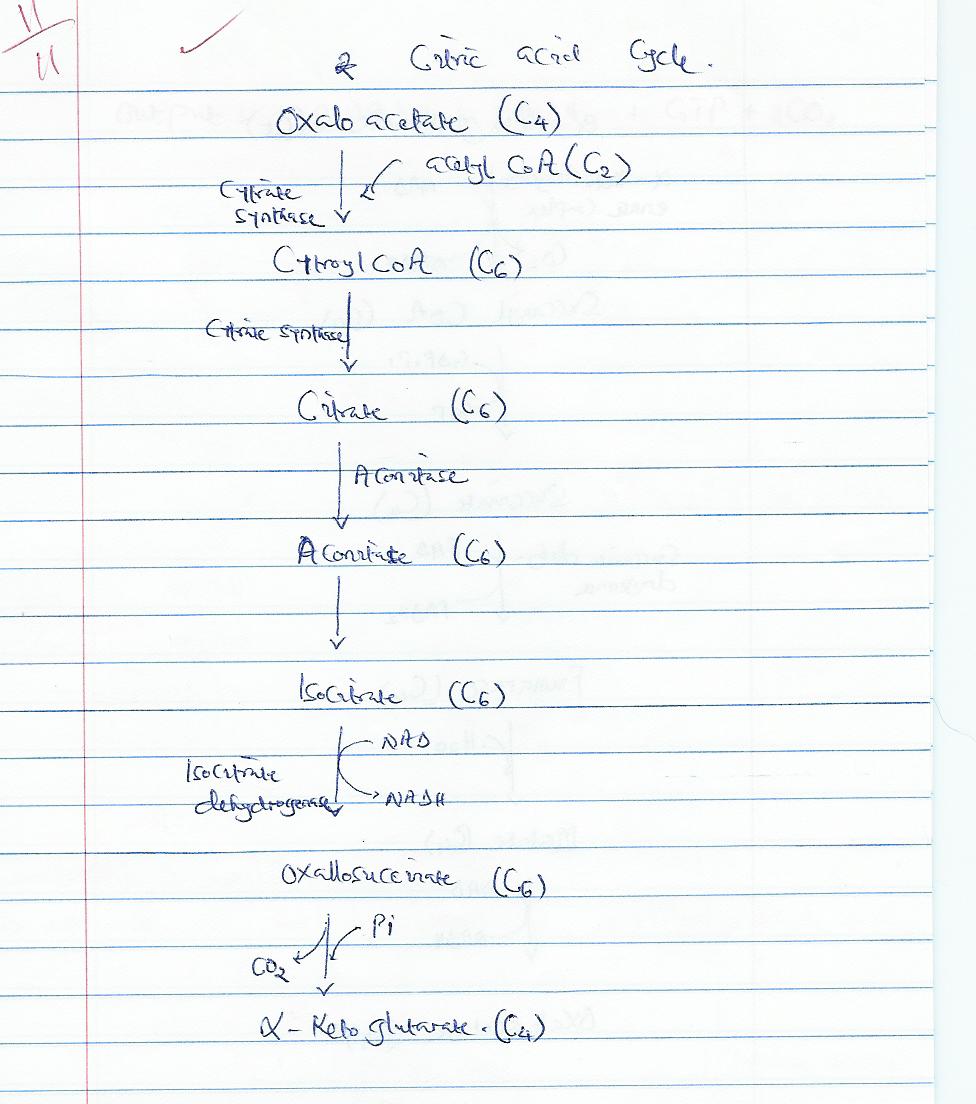 11
11
2 Citric acid Cycle.
Oxalo acetate (C4)
acetyl CoA (C2)
Cytrate
synthase
Cytroyl CoA (C6)
Citrate synthase
Citrate (C6)
Aconitase
Aconitate (C6)
Isocitrate (C6)
NAD
Isocitrate
dehydrogenase
NADH
Oxallosuccinate (C6)
Pi
CO2
α- Keto glutarate. (C4)